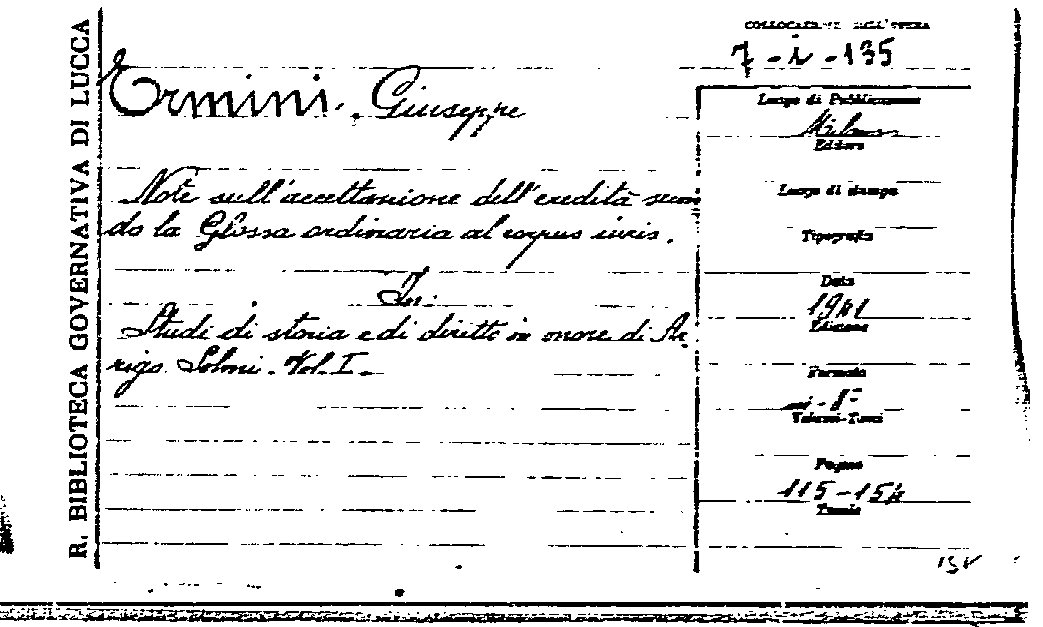 R. BIBLIOTECA GOVERNATIVA DI LUCCA
COLLOCAZIONE DELL'OPERA
7-i-135
Ermini. Giuseppe
Note sull'accettazione dell'eredità secon
do la Glossa ordinaria al corpus iuris.
In:
Studi di storia e di diritto in onore di Ar
rigo Solmi. Vol. I.
Luogo di Pubblicazione
Milano
Editore
Luogo di stampa
Tipografia
Data
1941
Edizione
Formato
in-8°
Volumi-Tomi
Pagine
115-154
Tavole